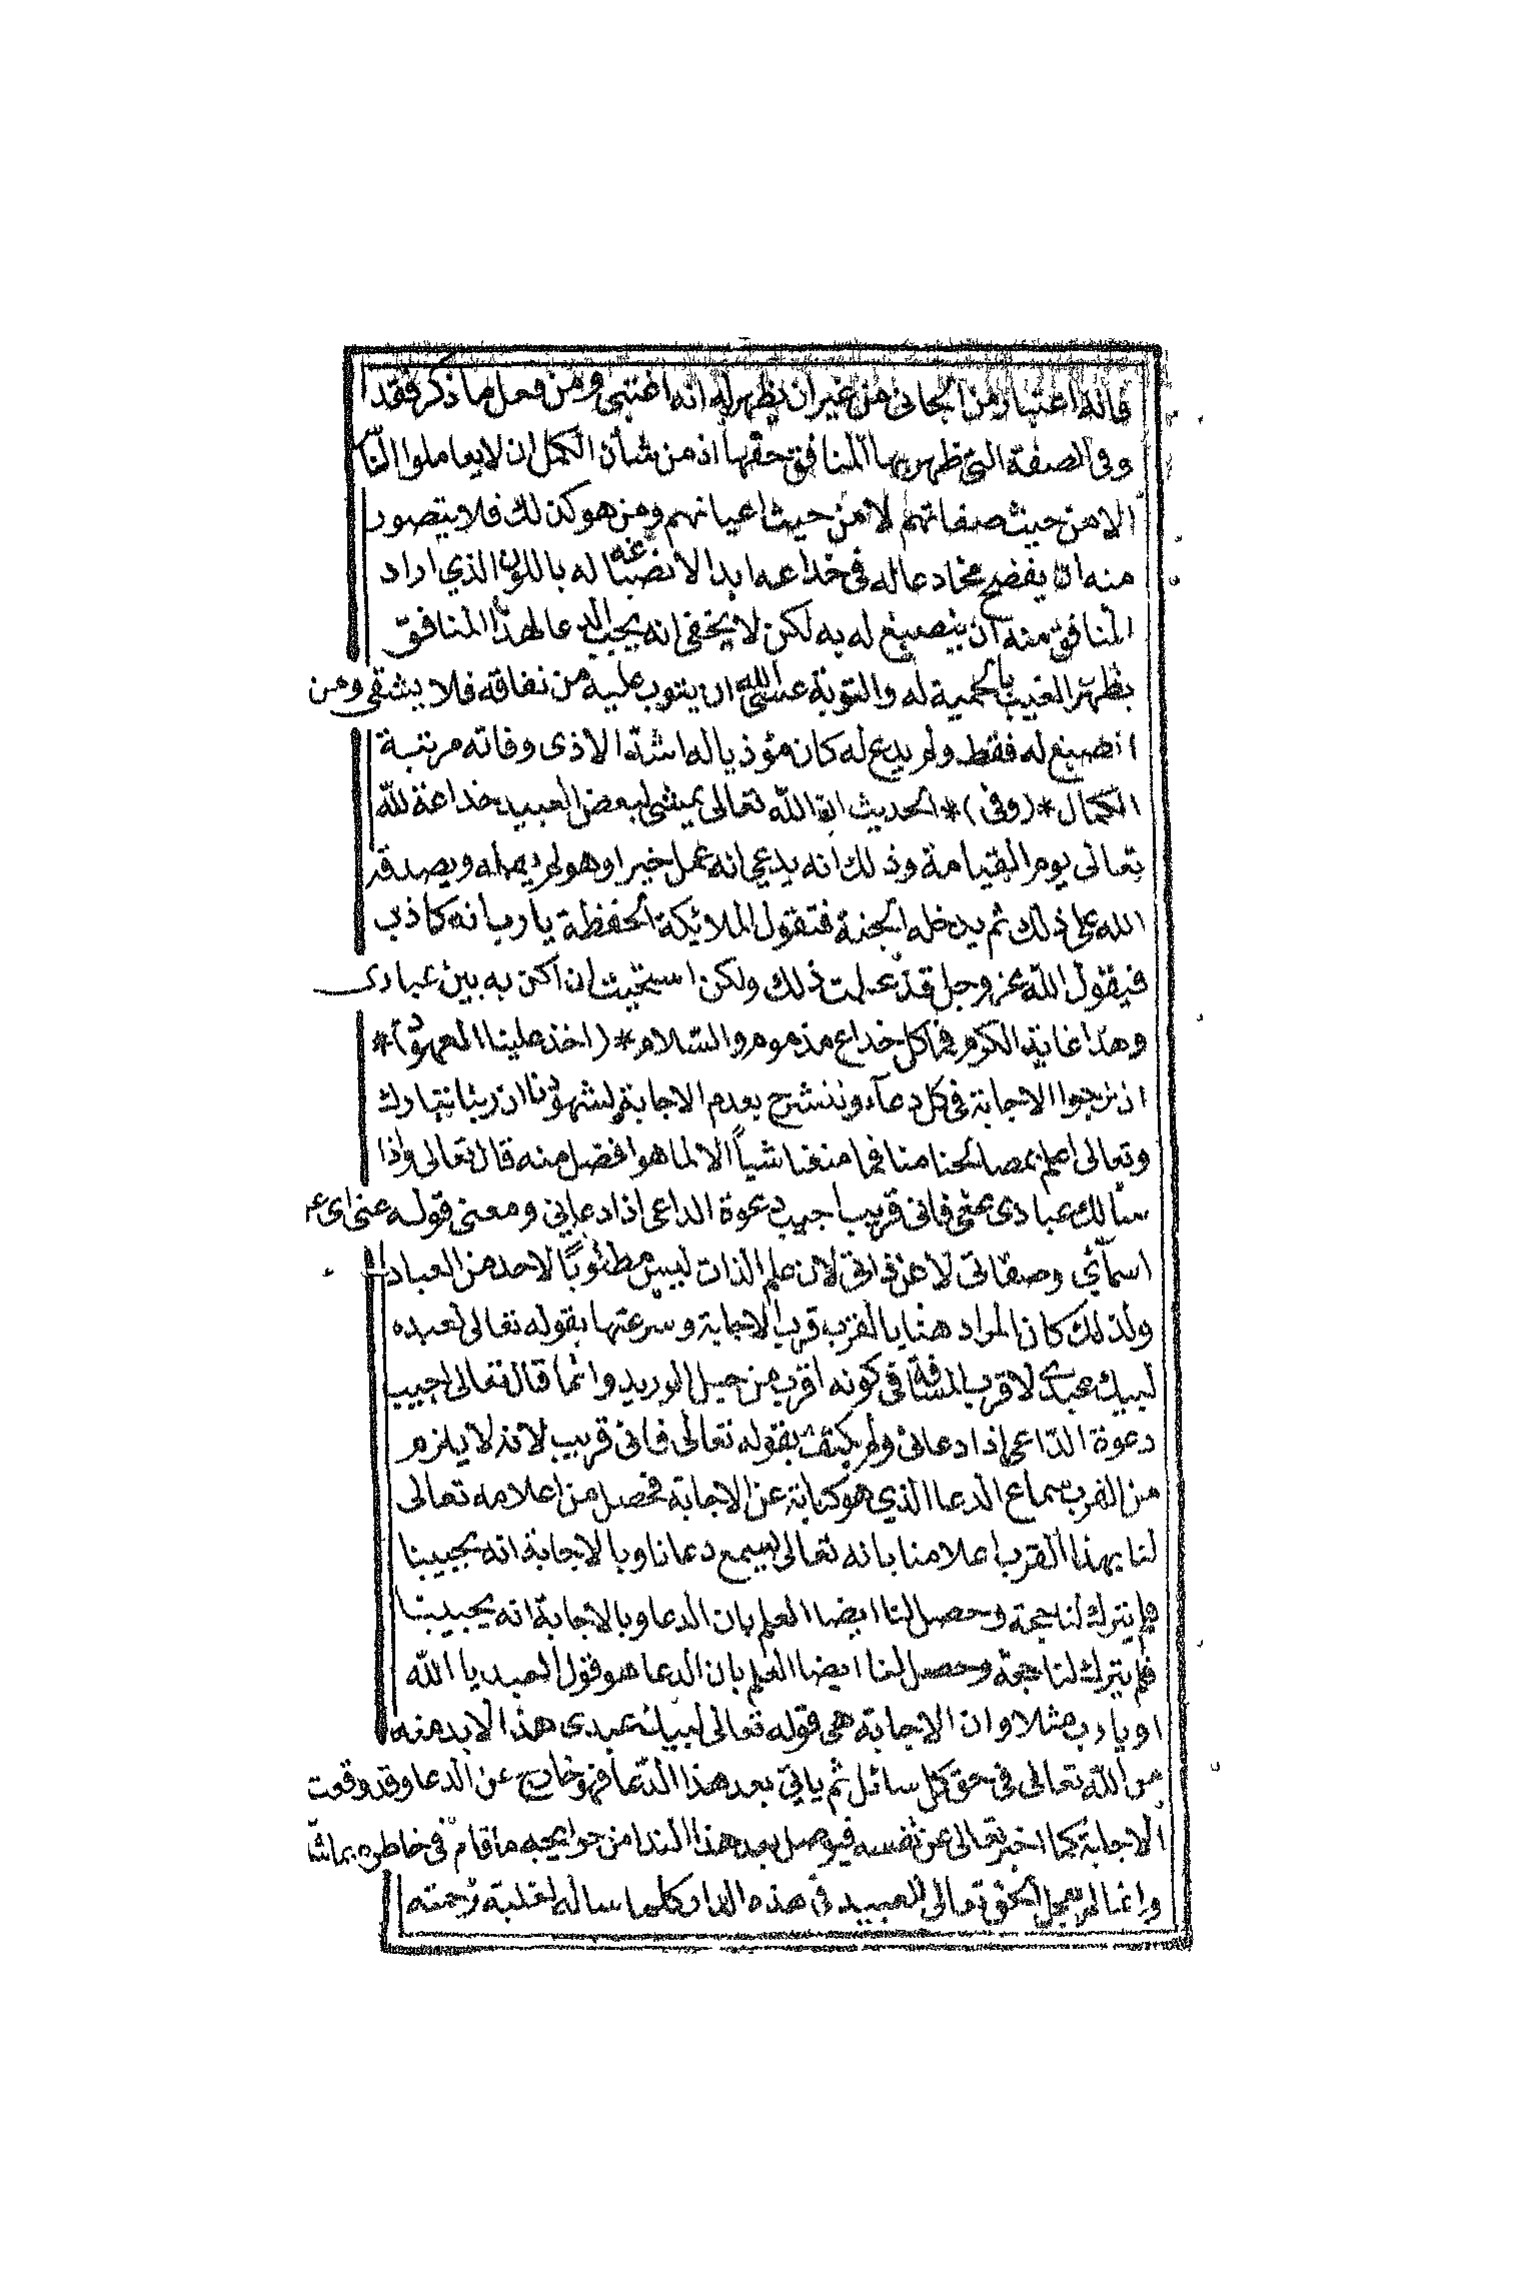 قاله اغتبا ومن الجانى من غير ان يظهر له انه اغتبى ومن فعل ما ذكر فقد ا
وفى الصفة التى ظهر بها المنافق حقها اذ من شأن الكمل ان لا يعاملوا النا
الا من حيث صفاتهم لا من حيث اعيانهم ومن هو كذلك فلا يتصور
منه ان يفضح مخادعا له فى خداعه ابدا لانصباغه له باللون الذي اراد
المنافق منه ان ينصبغ له به لكن لا يخفى انه يجب الدعا لهذا المنافق
بظهر الغيب بالحمية له والتوبة عسى الله ان يتوب عليه من نفاقه فلا يشقى ومن
انصبغ له فقط ولم يدع له كان مؤذيا له اشد الاذى وفاته مرتبة
الكمال *(وفى)* الحديث ان الله تعالى يمشى لبعض العبيد خداعة لله
تعالى يوم القيامة وذلك انه يدعي انه عمل خيرا وهو لم يعمله ويصدقه
الله على ذلك ثم يدخله الجنة فتقول الملائكة الحفظة يا رب انه كاذب
فيقول الله عز وجل قد علمت ذلك ولكن استحييت ان اكذبه بين عبادى
وهذا غاية الكرم فما كل خداع مذموم والسلام *(اخذ علينا العهود)*
ان نرجوا الاجابة فى كل دعآء وننشرح بعدم الاجابة لشهودنا ان ربنا تبارك
وتعالى اعلم بمصالحنا منا فما منعنا شياً الا لما هو افضل منه قال تعالى واذا
سألك عبادى عنى فانى قريب اجيب دعوة الداعى اذا دعانى ومعنى قوله عنى اى عن
اسمآئي وصفاتى لا عن ذاتى لان علم الذات ليس مطلوبًا لاحد من العباد
ولذلك كان المراد هنا بالقرب قرب الاجابة وسرعتها بقوله تعالى لعبده
لبيك عبدى لا قرب المسافة فى كونه اقرب من حبل الوريد وانما قال تعالى اجيب
دعوة الدّاعى اذا دعانى ولم يكتف بقوله تعالى فانى قريب لانه لا يلزم
من القرب سماع الدعا الذي هو كناية عن الاجابة فحصل من اعلامه تعالى
لنا بهذا القرب اعلامنا بانه تعالى يسمع دعانا وبالاجابة انه يجيبنا
فلم يترك لنا حجة وحصل لنا ايضا العلم بان الدعا وبالاجابة انه يجيبنا
فلم يترك لنا حجة وحصل لنا ايضا العلم بان الدعا هو قول العبد يا الله
او يا رب مثلا وان الاجابة هى قوله تعالى لبيك عبدى هذا لا بد منه
من الله تعالى فى حق كل سائل ثم ياتى بعد هذا الدّعا فهو خارج عن الدعا وقد وقعت
الاجابة كما اخبر تعالى عن نفسه فيوصل بعد هذا الندا من حوايجه ما قام فى خاطره بما شا
وانما لم يعجل الحق تعالى للعبيد فى هذه الدار كلما ساله لغلبة رحمته